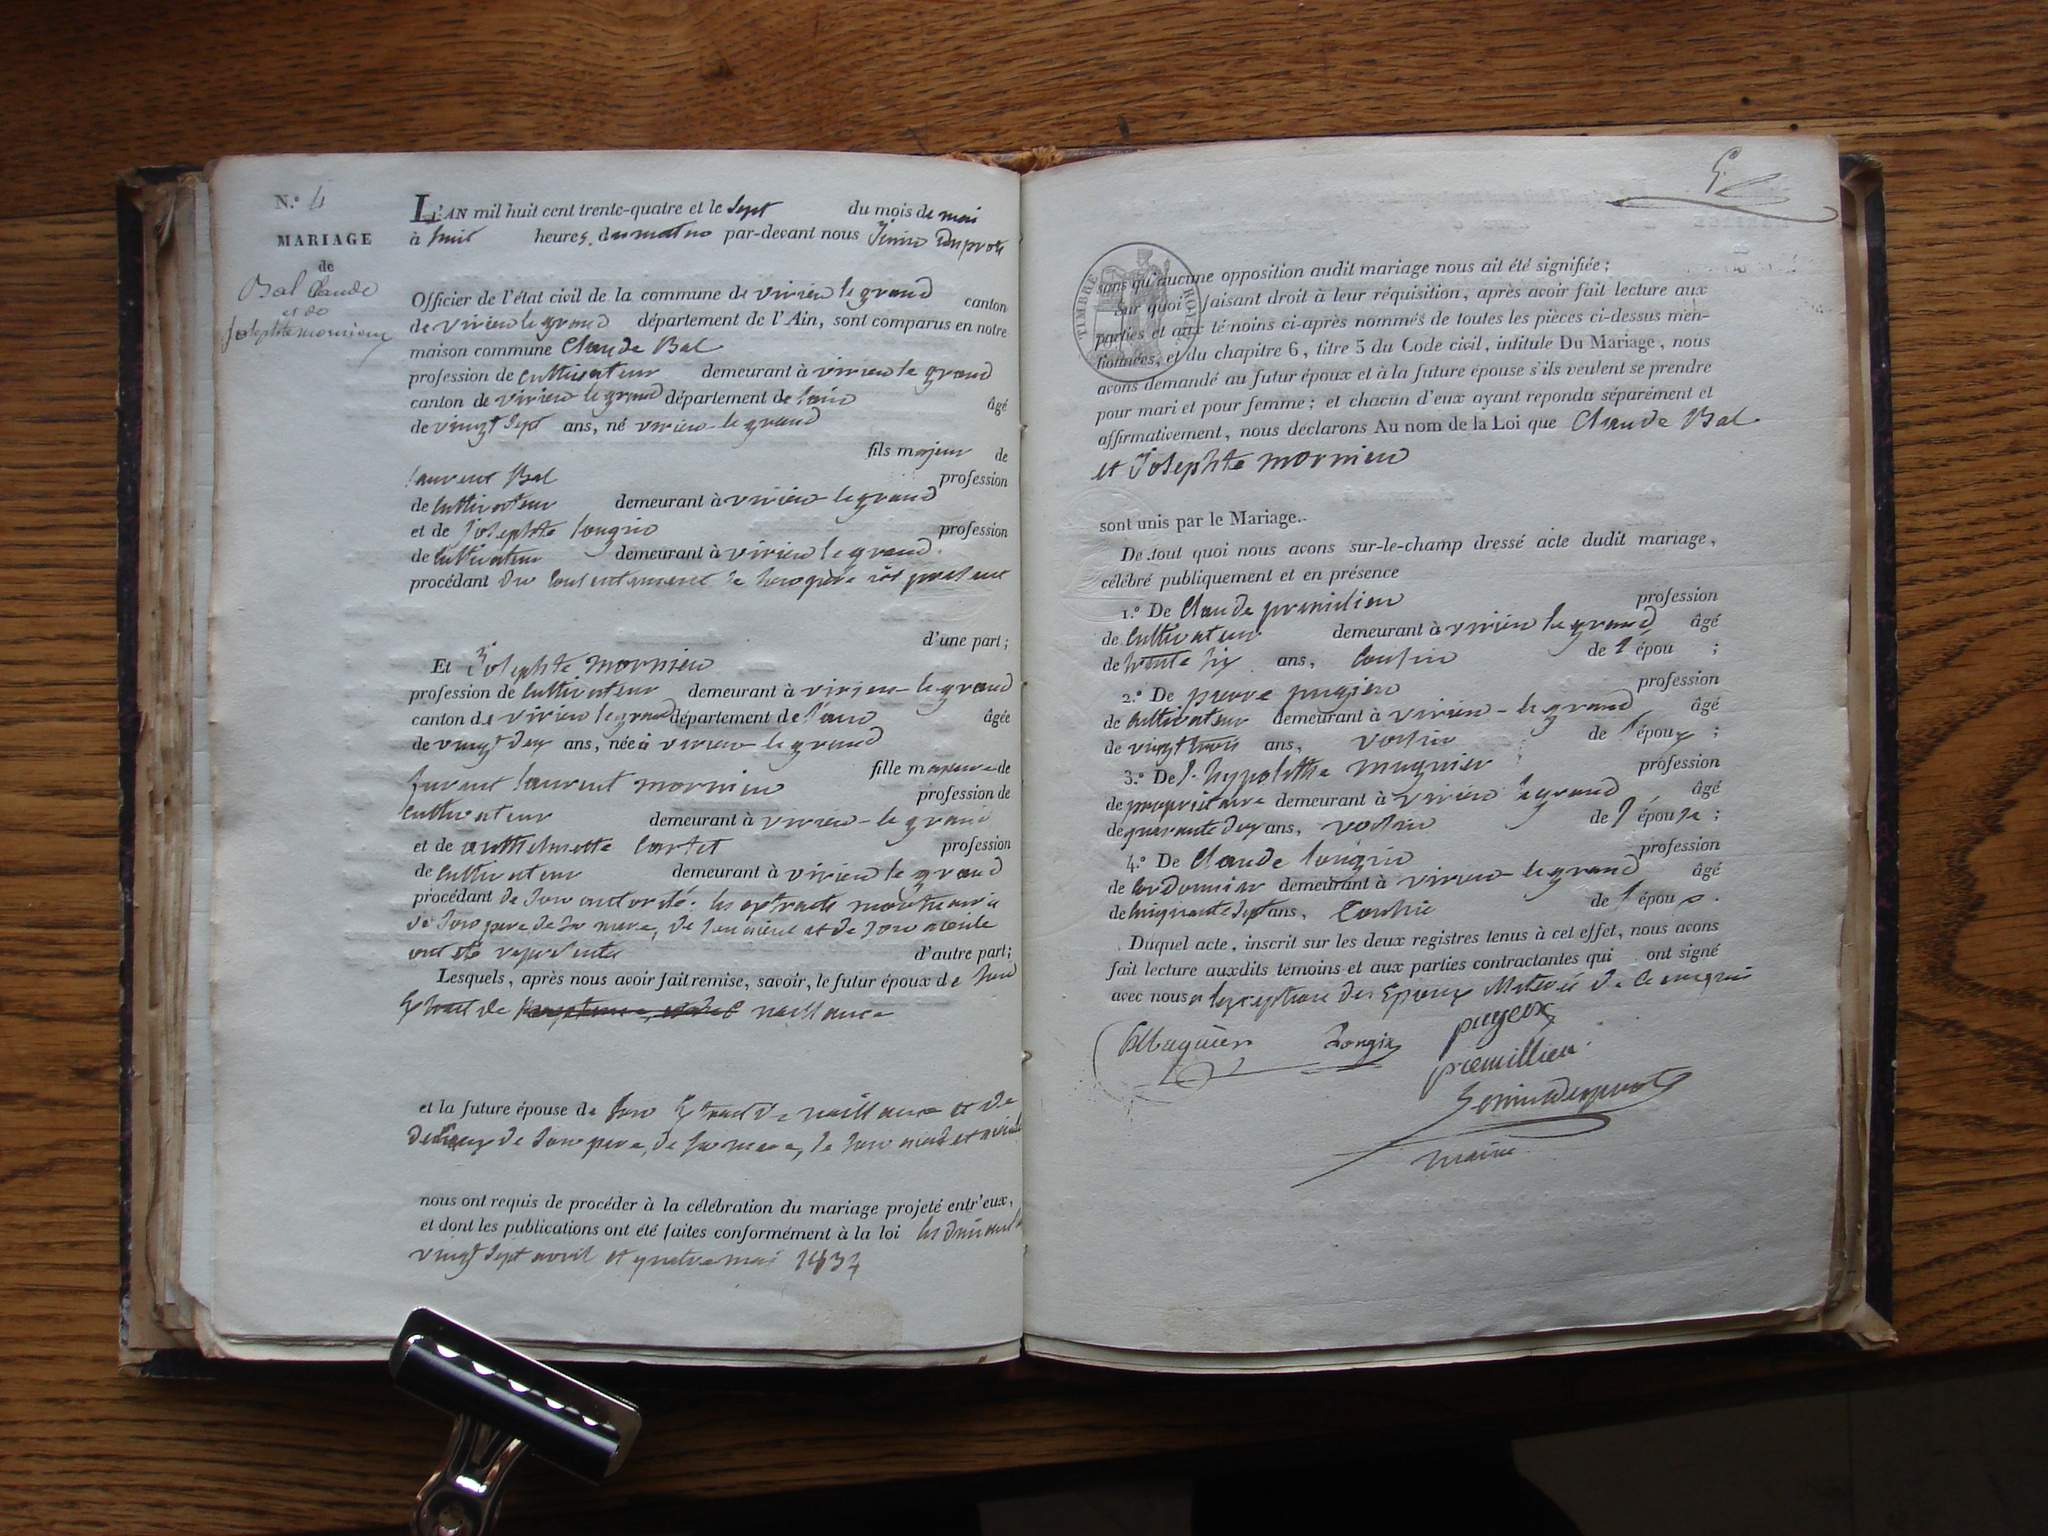 N.° 4
MARIAGE
de
Bal Claude
et de
Josephte mornieu
L'AN mil huit cent trente-quatre et le sept du mois de mai
à huit heures du matin par-devant nous
Officier de l'état civil de la commune de virieu le grand canton
de virieu le grand département de l'Ain, sont comparus en notre
maison commune Claude Bal
profession de cultivateur demeurant à virieu le grand
canton de virieu le grand département de l'ain âgé
de vingt sept ans, né virieu-le grand
fils majeur de
laurent Bal profession
de cultivateur demeurant à virieu-le grand
et de Josephte longin profession
de cultivateur demeurant à virieu le grand.
procédant du consentement de son père ici présent
d'une part;
Et Josephte mornieu
profession de cultivateur demeurant à virieu-le grand
canton de virieu le grand département de l'ain âgée
de vingt deux ans, née à virieu-le grand
fille majeure de
furent laurent mornieu profession de
cultivateur demeurant à virieu-le grand
et de anthelmette profession
de cultivateur demeurant à virieu le grand
procédant de son autorité. les extraits mortuaires
de son pere, de sa mere, de son aïeul et de son aieule
ont été d'autre part;
Lesquels, après nous avoir fait remise, savoir, le futur époux de son
Extrait de naissance
et la future épouse de son Extrait de naissance et de
de son pere, de sa mere, de son aieul et aieule
nous ont requis de procéder à la célébration du mariage projeté entr'eux,
et dont les publications ont été faites conformément à la loi les dimanches
vingt sept avril et quatre mai 1834
5
TIMBRE ROYAL
sans qu'aucune opposition audit mariage nous ait été signifiée;
Sur quoi faisant droit à leur réquisition, après avoir fait lecture aux
parties et aux témoins ci-après nommés de toutes les pièces ci-dessus men-
tionnées, et du chapitre 6, titre 5 du Code civil, intitulé Du Mariage, nous
avons demandé au futur époux et à la future épouse s'ils veulent se prendre
pour mari et pour femme; et chacun d'eux ayant repondu séparément et
affirmativement, nous déclarons Au nom de la Loi que Claude Bal
et Josephte mornieu
sont unis par le Mariage.
De tout quoi nous avons sur-le-champ dressé acte dudit mariage,
célébré publiquement et en présence
1.° De Claude premilieu profession
de cultivateur demeurant à virieu le grand âgé
de trente six ans, cousin de l'épou ;
2.° De pierre pugieu profession
de cultivateur demeurant à virieu-le grand âgé
de vingt trois ans, voisin de l'époux ;
3.° De hypolithe muguier profession
de propriétaire demeurant à virieu le grand âgé
de quarante deux ans, voisin de l'épouse ;
4.° De Claude longin profession
de cordonnier demeurant à virieu-le grand âgé
de cinquante sept ans, cousin de l'épou .
Duquel acte, inscrit sur les deux registres tenus à cet effet, nous avons
fait lecture auxdits témoins et aux parties contractantes qui ont signé
avec nous a lexception des Epoux de ce enquis
Longin
pugeux
premillieu
maire